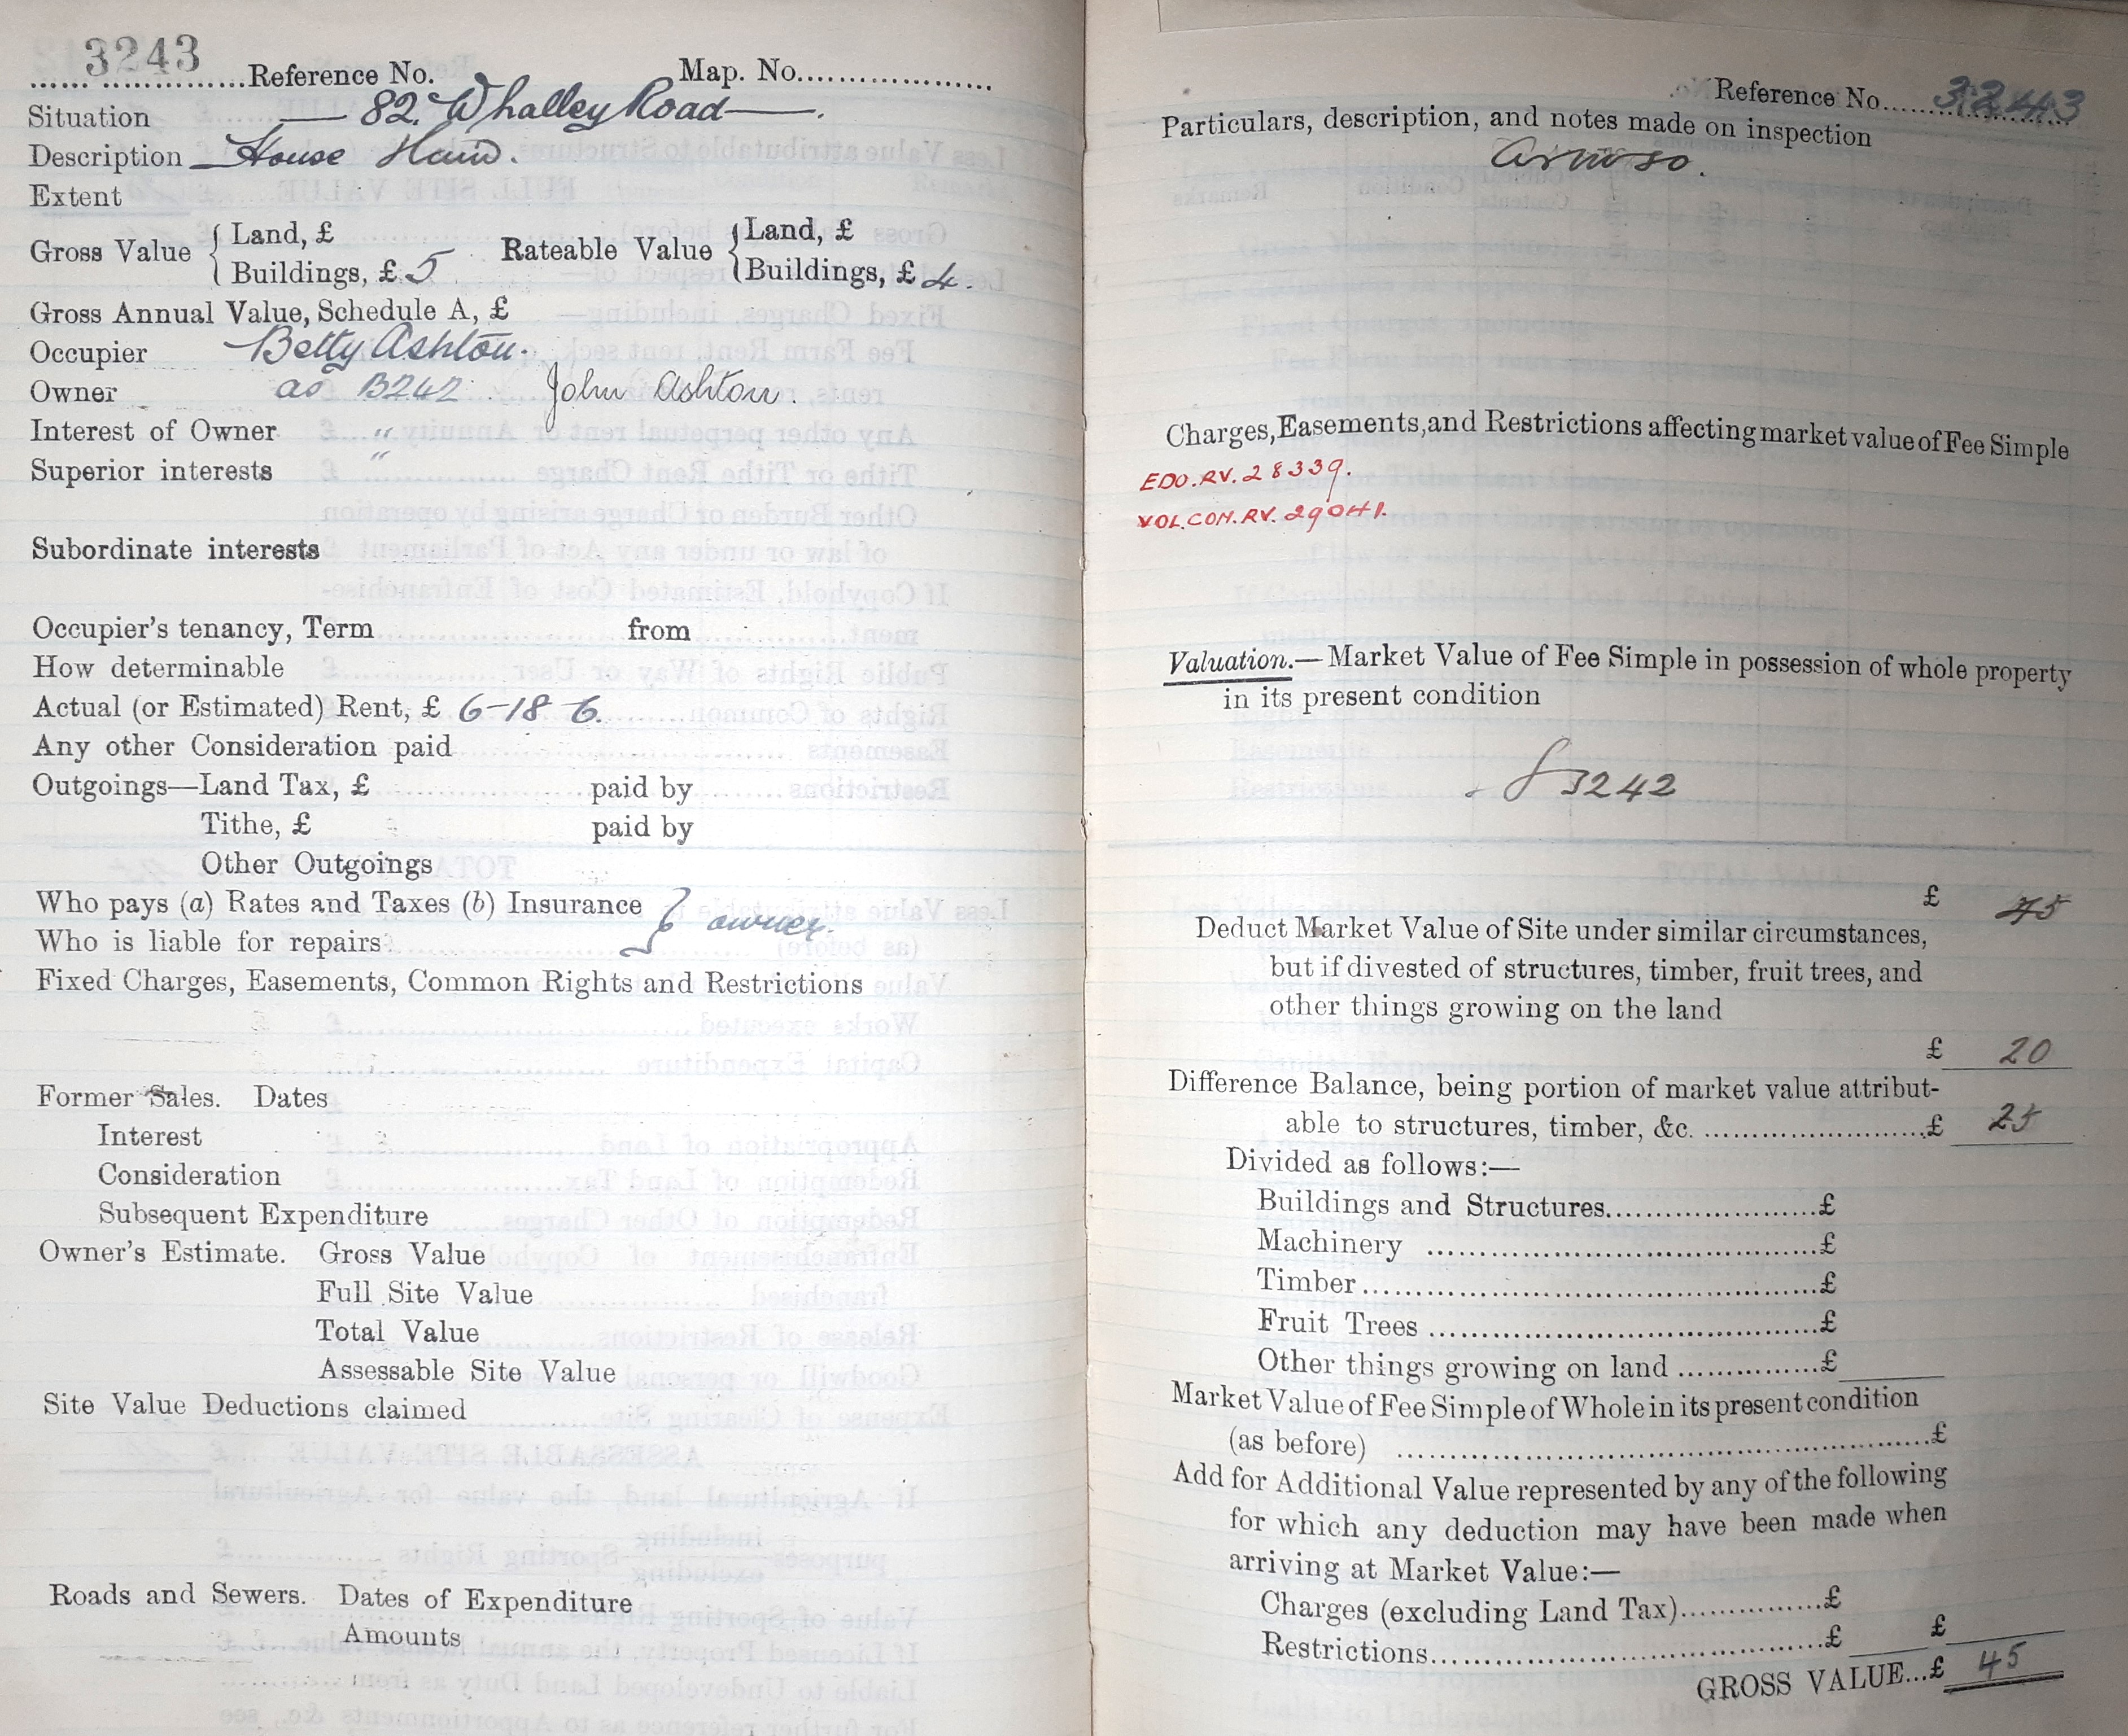 3243 Reference No. Map. No.
Situation — 82. Whalley Road —.
Description House
Extent
Gross Value { Land, £ Rateable Value { Land, £
Buildings, £ 5 Buildings, £ 4.
Gross Annual Value, Schedule A, £
Occupier Betty Ashton.
Owner as B242 John Ashton.
Interest of Owner "
Superior interests "
Subordinate interests
Occupier's tenancy, Term from
How determinable
Actual (or Estimated) Rent, £ 6-18 6.
Any other Consideration paid
Outgoings—Land Tax, £ paid by
Tithe, £ paid by
Other Outgoings
Who pays (a) Rates and Taxes (b) Insurance
Who is liable for repairs } owner.
Fixed Charges, Easements, Common Rights and Restrictions
Former Sales. Dates
Interest
Consideration
Subsequent Expenditure
Owner's Estimate. Gross Value
Full Site Value
Total Value
Assessable Site Value
Site Value Deductions claimed
Roads and Sewers. Dates of Expenditure
Amounts
Reference No. 3243
Particulars, description, and notes made on inspection
Charges, Easements, and Restrictions affecting market value of Fee Simple
EDO.RV. 28339.
VOL.CON.RV. 29041.
Valuation.—Market Value of Fee Simple in possession of whole property
in its present condition
3242
£ 45
Deduct Market Value of Site under similar circumstances,
but if divested of structures, timber, fruit trees, and
other things growing on the land
£ 20
Difference Balance, being portion of market value attribut-
able to structures, timber, &c. £ 25
Divided as follows:—
Buildings and Structures £
Machinery £
Timber £
Fruit Trees £
Other things growing on land £
Market Value of Fee Simple of Whole in its present condition
(as before) £
Add for Additional Value represented by any of the following
for which any deduction may have been made when
arriving at Market Value:—
Charges (excluding Land Tax) £
Restrictions £ £
GROSS VALUE...£ 45